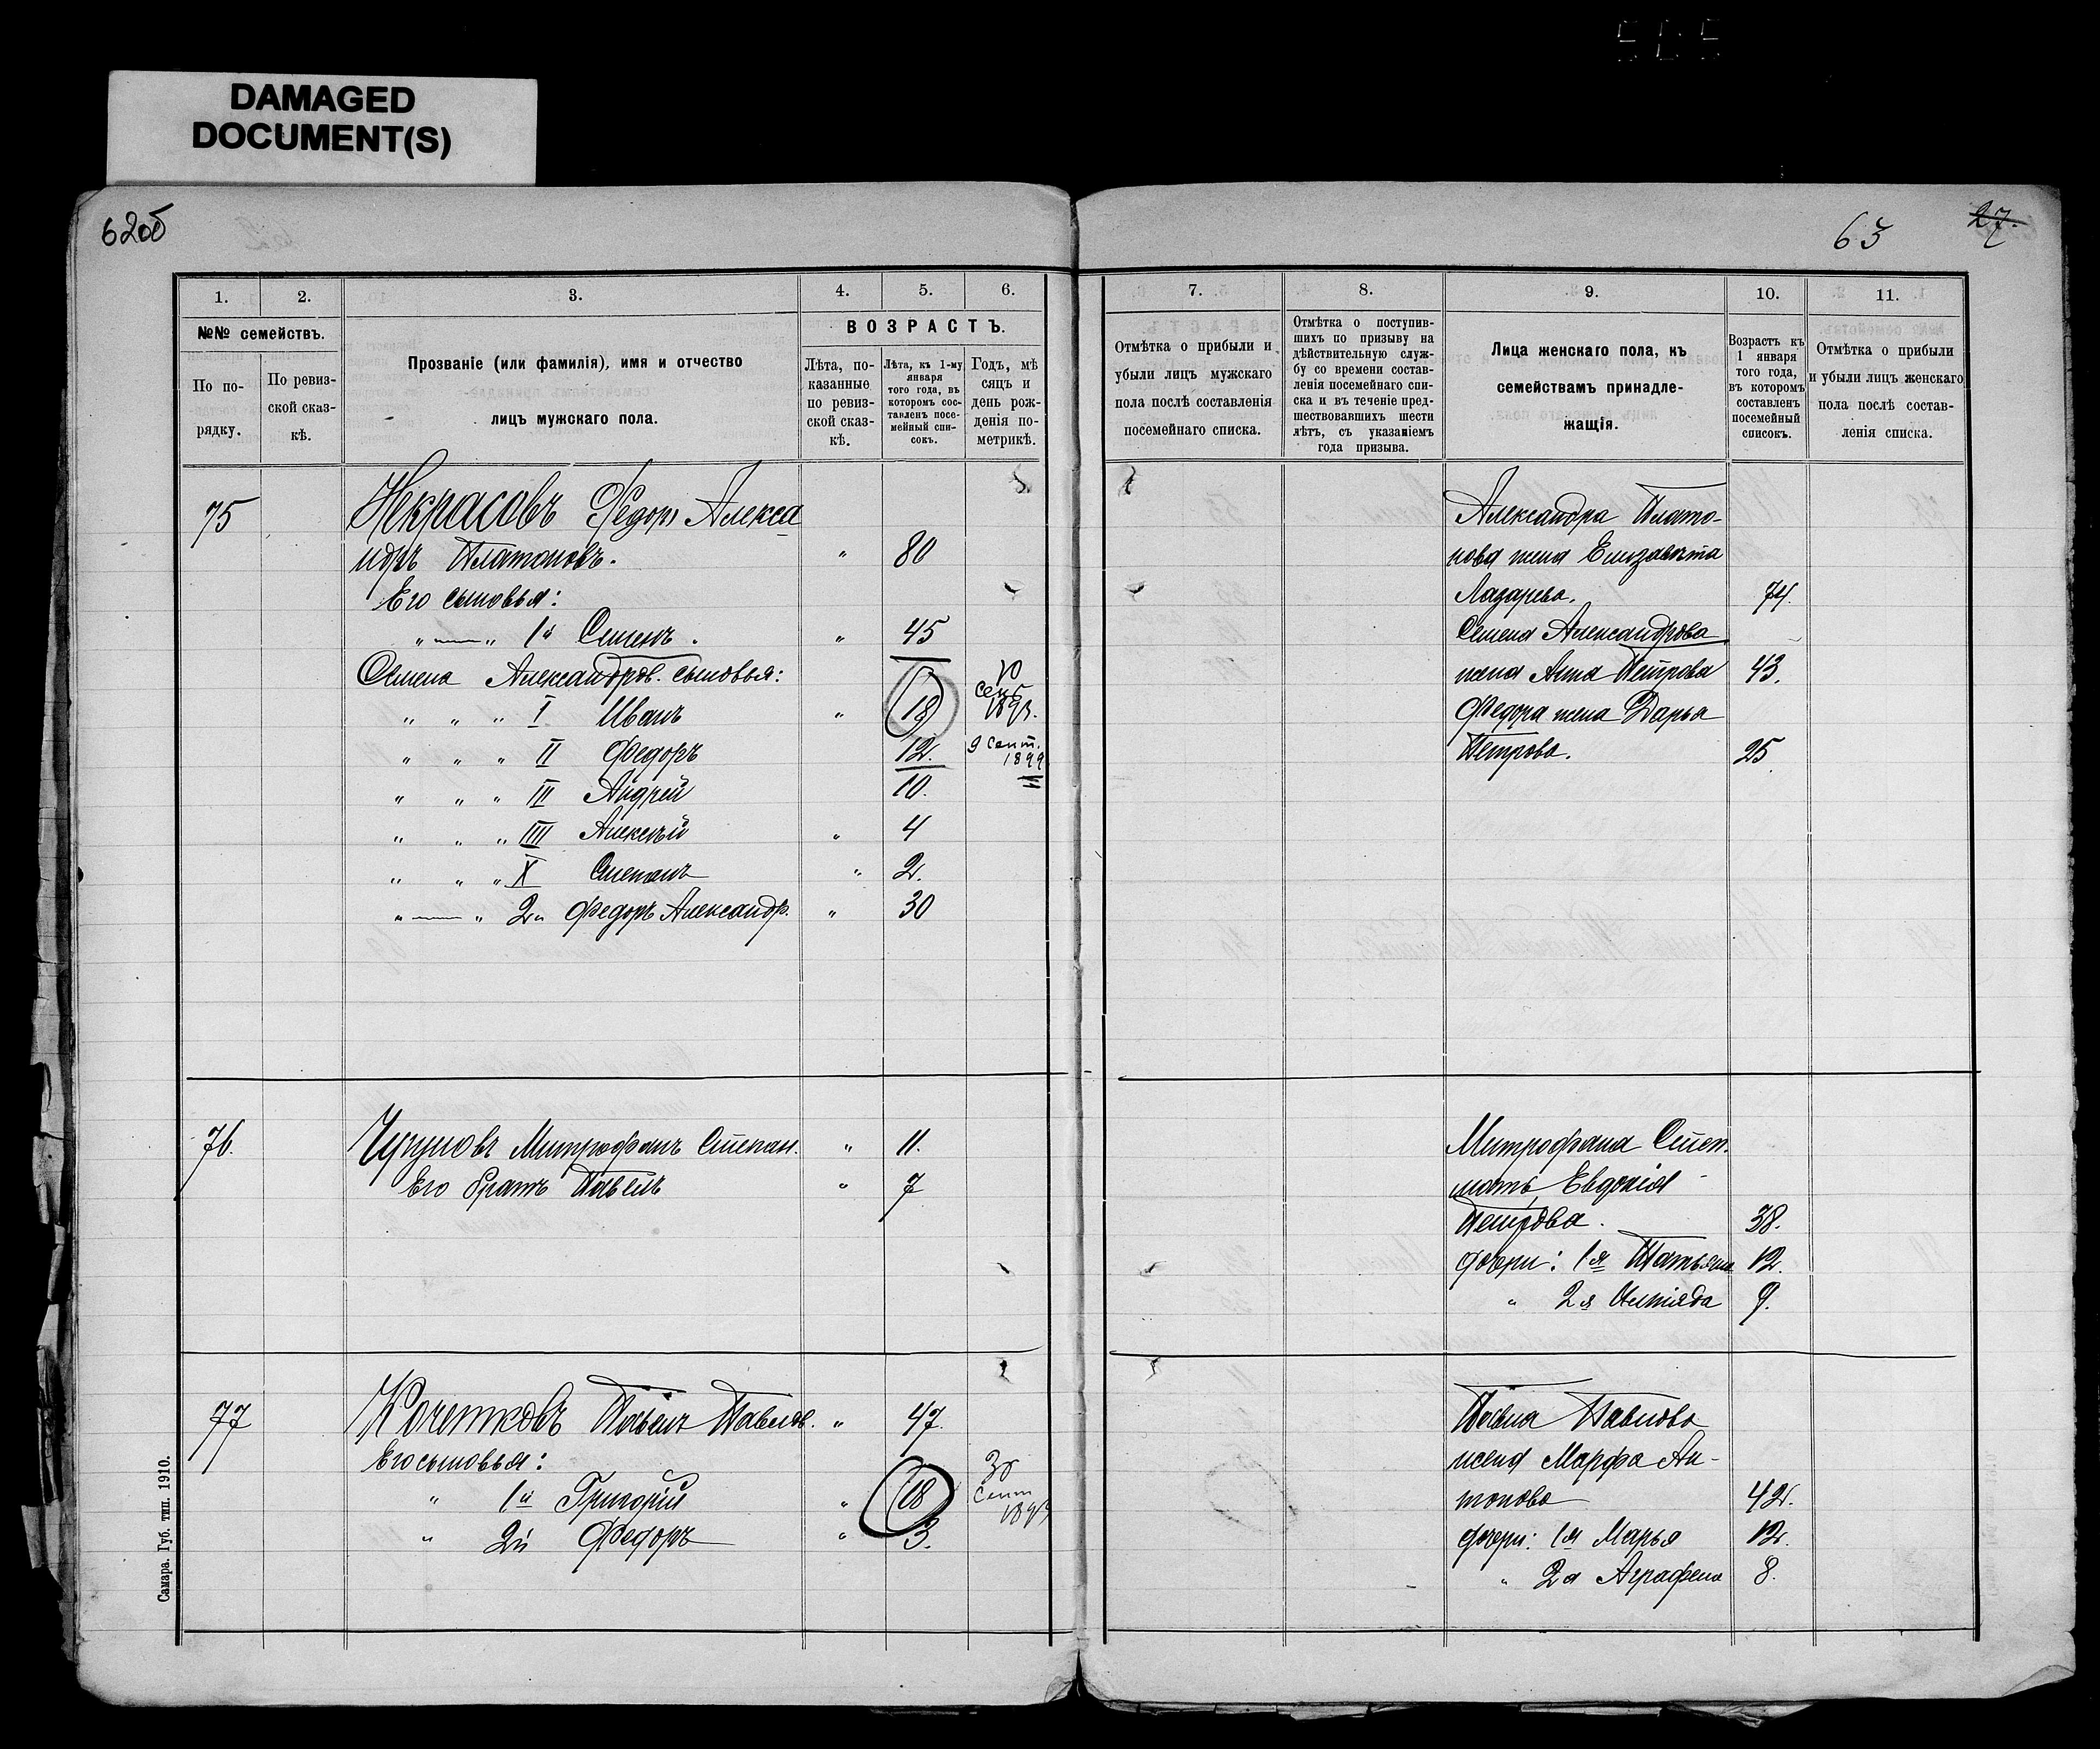 DAMAGED
DOCUMENT(S)
62об
63
27.
1.
2.
3.
4.
5.
6.
№№ семействъ.
По по-
рядку.
По ревиз-
ской сказ-
кѣ.
Прозваніе (или фамилія), имя и отчество
лицъ мужскаго пола.
ВОЗРАСТЪ.
Лѣта, по-
казанные
по ревиз-
ской сказ-
кѣ.
Лѣта, къ 1-му
января
того года, въ
которомъ сос-
тавленъ посе-
мейный спи-
сокъ.
Годъ, мѣ
сяцъ и
день рож-
денія по-
метрикѣ.
75
Некрасовъ Федоръ Алекса
ндръ Платоновъ. " 80
Его сыновья:
"—" 1й Семенъ. " 45
Семена Александров. сыновья:
" " " I Иванъ " 18
сент
1893.
" " " II Федоръ 12. 9 сент.
1899
" " " III Андрей 10.
" " " IIII Алексѣй " 4
" " " X Степанъ " 2.
"—" 2й Федоръ Александр. " 30
76.
Чугуновъ Митрофанъ Степан. " 11.
Его братъ Павелъ " 7
77
Кочетковъ Павелъ Павлов. " 47.
Его сыновья:
" 1й Григорій " 18 30
сент
1893
" 2й Федоръ " 3.
Самара. Губ. тип. 1910.
7.
8.
9.
10.
11.
Отмѣтка о прибыли и
убыли лицъ мужскаго
пола послѣ составленія
посемейнаго списка.
Отмѣтка о поступив-
шихъ по призыву на
дѣйствительную служ-
бу со времени состав-
ленія посемейнаго спи-
ска и въ теченіе пред-
шествовавшихъ шести
лѣтъ, съ указаніемъ
года призыва.
Лица женскаго пола, къ
семействамъ принадле-
жащія.
Возрастъ къ
1 января
того года,
въ которомъ
составленъ
посемейный
списокъ.
Отмѣтка о прибыли
и убыли лицъ женскаго
пола послѣ состав-
ленія списка.
Александра Плато-
нова жена Елизавета
Лазарева. 74.
Семена Александрова
жена Анна Петрова 43.
Федора жена Дарья
Петрова. 25
Митрофана Степ.
мать Евдокія
Петрова. 38.
дочери: 1я Татьяна 12.
" 2я 9.
Павла Павлова
жена Марфа Ан-
тонова 42.
дочери: 1я Марья 12.
" 2я Аграфена 8.